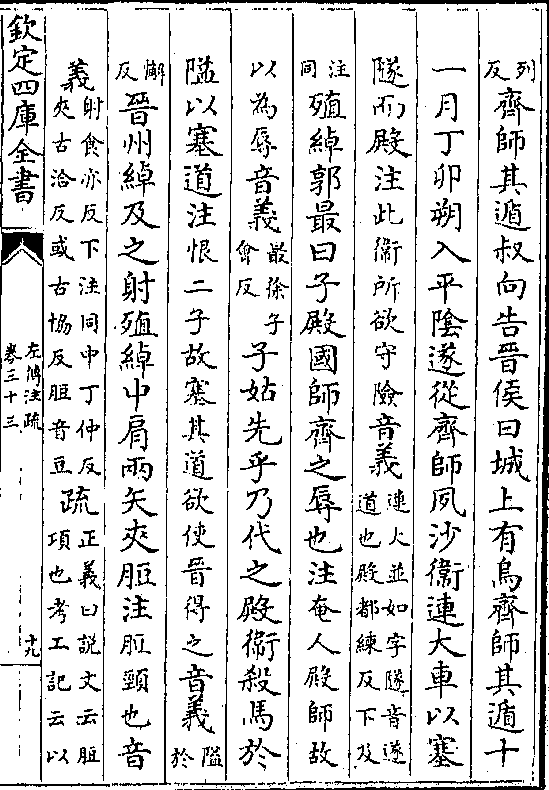 列反齊師其遁叔向告晉侯曰城上有烏齊師其遁十
一月丁卯朔入平隂遂從齊師夙沙衛連大車以塞
隧而殿注此衛所欲守險音義連大並如字隧音遂道也殿都練反下及
注同殖綽郭最曰子殿國師齊之辱也注奄人殿師故
以為辱音義最徐子會反子姑先乎乃代之殿衛殺馬於
隘以塞道注恨二子故塞其道欲使晉得之音義隘於
懈反晉州綽及之射殖綽中肩兩矢夾脰注脰頸也音
義射食亦反下注同中丁仲反夾古洽反或古協反脰音豆疏正義曰説文云脰項也考工記云以
欽定四庫全書
左傳注疏
卷三十三
十九